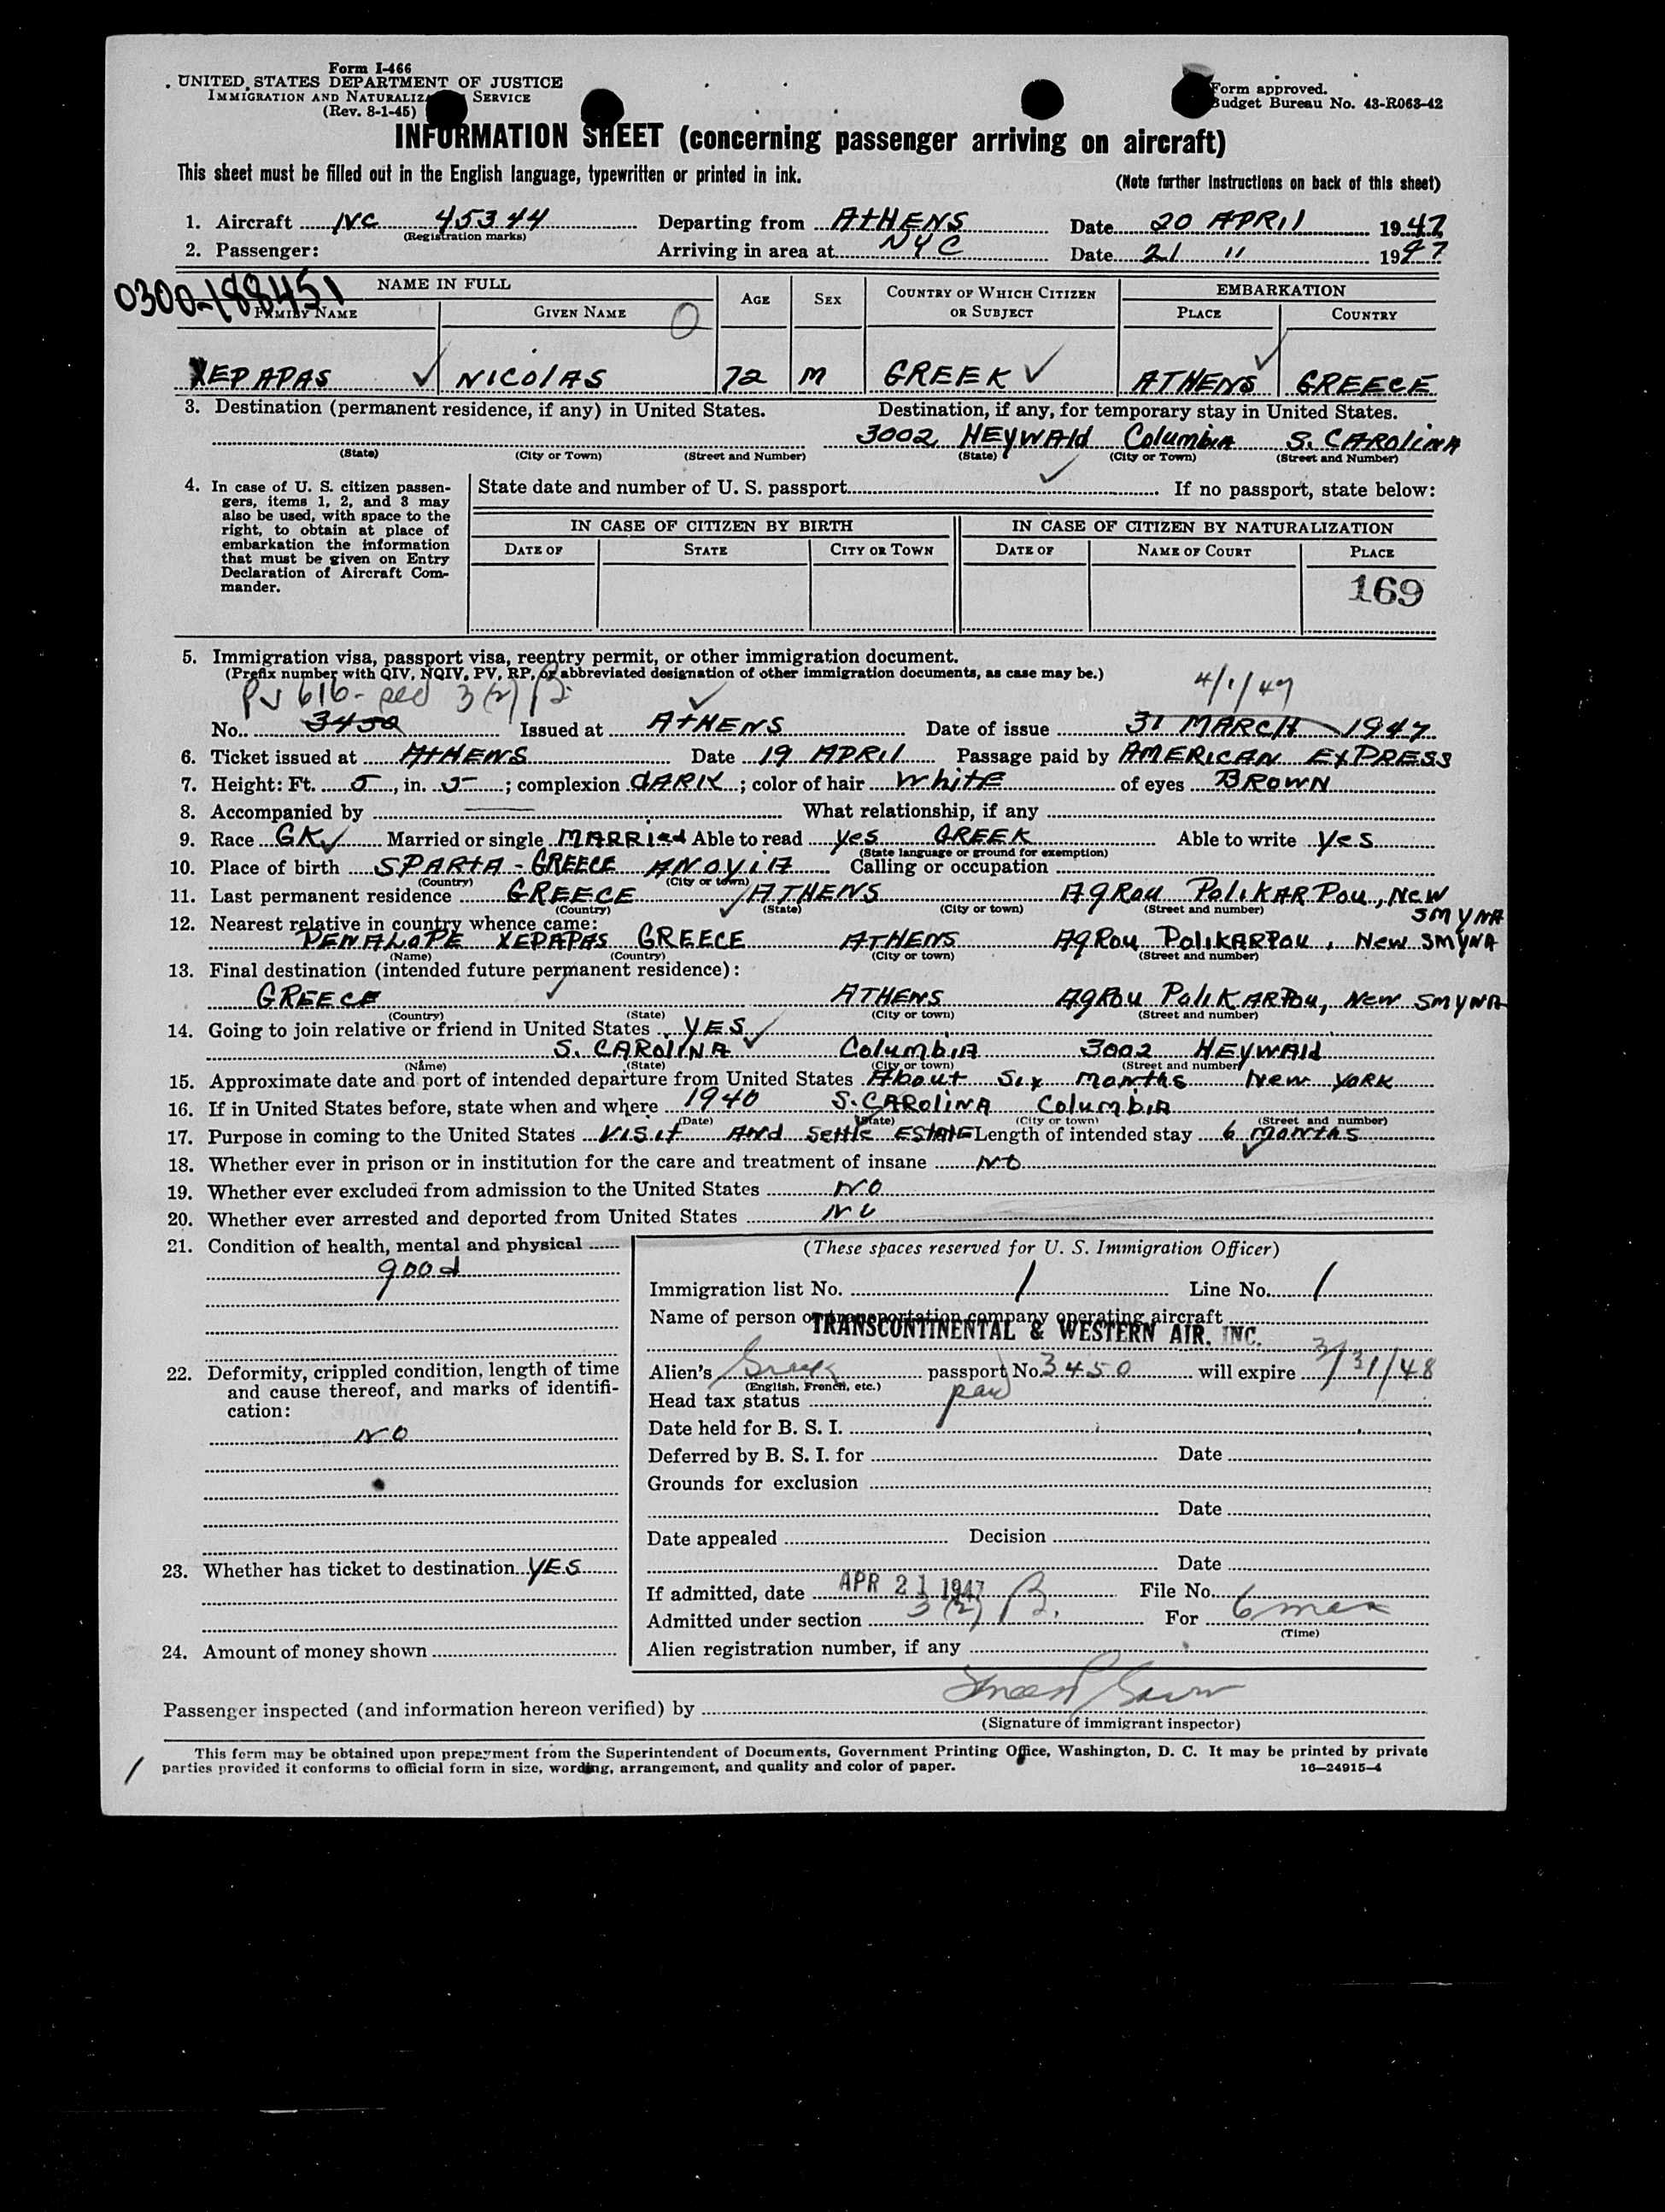 Form I-466
UNITED STATES DEPARTMENT OF JUSTICE
IMMIGRATION AND NATURALIZ SERVICE
(Rev. 8-1-45)
Form approved.
Budget Bureau No. 43-R063-42
INFORMATION SHEET (concerning passenger arriving on aircraft)
This sheet must be filled out in the English language, typewritten or printed in ink.
(Note further instructions on back of this sheet)
1. Aircraft NC 45344 Departing from ATHENS Date 20 APRIL 1947
(Registration marks)
2. Passenger: Arriving in area at NYC Date 21 " 1947
0300-188451
NAME IN FULL AGE SEX COUNTRY OF WHICH CITIZEN OR SUBJECT EMBARKATION
FAMILY NAME GIVEN NAME PLACE COUNTRY
XEPAPAS NICOLAS 72 M GREEK ATHENS GREECE
3. Destination (permanent residence, if any) in United States. Destination, if any, for temporary stay in United States.
3002 HEYWALD Columbia S. CAROLINA
(State) (City or Town) (Street and Number) (State) (City or Town) (Street and Number)
4. In case of U. S. citizen passengers, items 1, 2, and 3 may also be used, with space to the right, to obtain at place of embarkation the information that must be given on Entry Declaration of Aircraft Commander.
State date and number of U. S. passport If no passport, state below:
IN CASE OF CITIZEN BY BIRTH IN CASE OF CITIZEN BY NATURALIZATION
DATE OF STATE CITY OR TOWN DATE OF NAME OF COURT PLACE
169
5. Immigration visa, passport visa, reentry permit, or other immigration document.
(Prefix number with QIV, NQIV, PV, RP, or abbreviated designation of other immigration documents, as case may be.)
PV 616- sec 3(2) 4/1/47
No. 3450 Issued at ATHENS Date of issue 31 MARCH 1947
6. Ticket issued at ATHENS Date 19 APRIL Passage paid by AMERICAN EXPRESS
7. Height: Ft. 5, in. 5; complexion DARK; color of hair White of eyes BROWN
8. Accompanied by What relationship, if any
9. Race GK Married or single MARRIED Able to read yes GREEK Able to write yes
(State language or ground for exemption)
10. Place of birth SPARTA - GREECE ANOYIA Calling or occupation
(Country) (City or town)
11. Last permanent residence GREECE ATHENS AGROU POLIKARPOU, NEW SMYNA
(Country) (State) (City or town) (Street and number)
12. Nearest relative in country whence came:
PENALOPE XEPAPAS GREECE ATHENS AGROU POLIKARPOU, NEW SMYNA
(Name) (Country) (City or town) (Street and number)
13. Final destination (intended future permanent residence):
GREECE ATHENS AGROU POLIKARPOU, NEW SMYNA
(Country) (State) (City or town) (Street and number)
14. Going to join relative or friend in United States YES
S. CAROLINA Columbia 3002 HEYWALD
(Name) (State) (City or town) (Street and number)
15. Approximate date and port of intended departure from United States About Six months New YORK
16. If in United States before, state when and where 1940 S. CAROLINA Columbia
(Date) (State) (City or town) (Street and number)
17. Purpose in coming to the United States Visit And Settle ESTATE Length of intended stay 6 months
18. Whether ever in prison or in institution for the care and treatment of insane NO
19. Whether ever excluded from admission to the United States NO
20. Whether ever arrested and deported from United States NO
21. Condition of health, mental and physical
good
22. Deformity, crippled condition, length of time and cause thereof, and marks of identification:
NO
23. Whether has ticket to destination YES
24. Amount of money shown
(These spaces reserved for U. S. Immigration Officer)
Immigration list No. 1 Line No. 1
Name of person or transportation company operating aircraft
TRANSCONTINENTAL & WESTERN AIR, INC.
Alien's Greek passport No. 3450 will expire 3/31/48
(English, French, etc.)
Head tax status paid
Date held for B. S. I.
Deferred by B. S. I. for Date
Grounds for exclusion
Date
Date appealed Decision
Date
If admitted, date APR 21 1947 File No.
Admitted under section 3(2) For 6 mos
(Time)
Alien registration number, if any
Passenger inspected (and information hereon verified) by
(Signature of immigrant inspector)
This form may be obtained upon prepayment from the Superintendent of Documents, Government Printing Office, Washington, D. C. It may be printed by private
parties provided it conforms to official form in size, wording, arrangement, and quality and color of paper. 16—24915-4